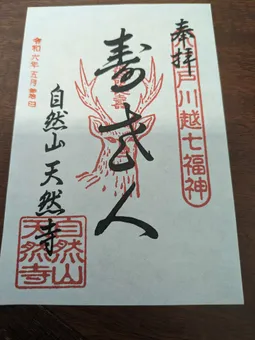 奉拝
小江戸川越七福神
寿老人
自然山 天然寺
令和六年五月吉日
自然山
天然寺